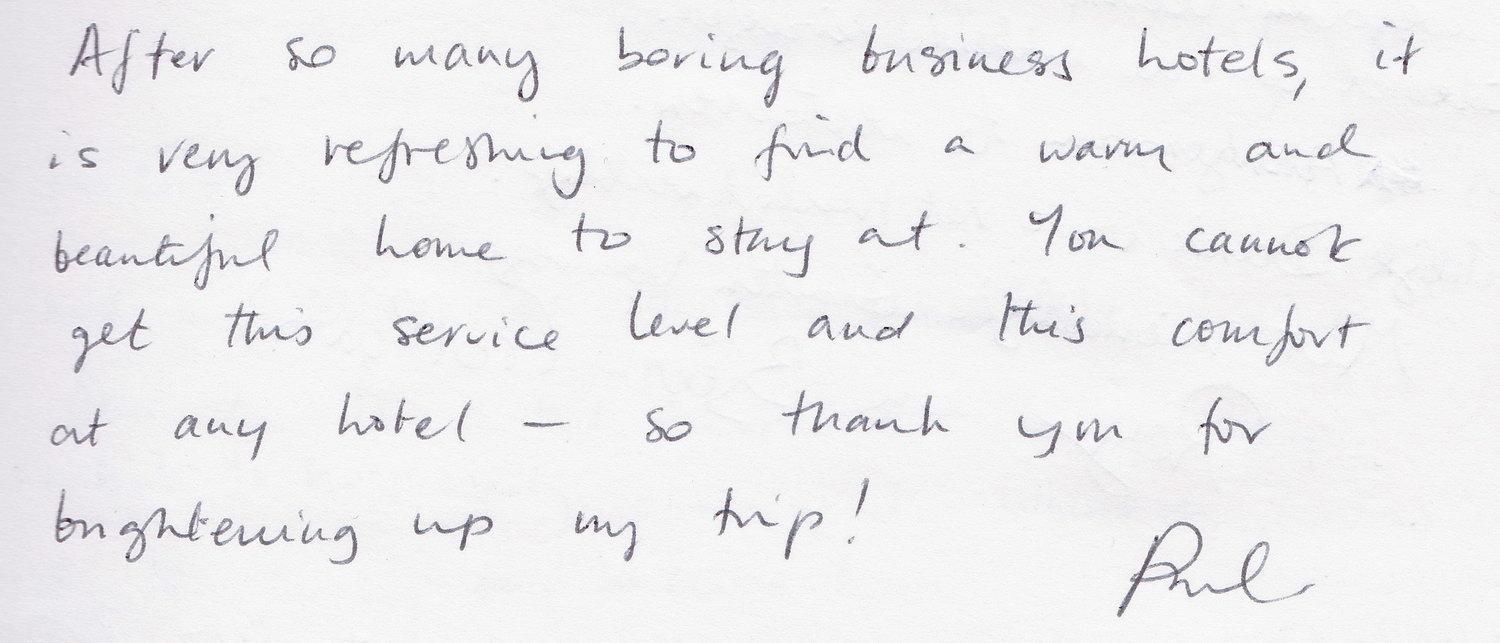 After so many boring business hotels, it
is very refreshing to find a warm and
beautiful home to stay at. You cannot
get this service level and this comfort
at any hotel – so thank you for
brightening up my trip!